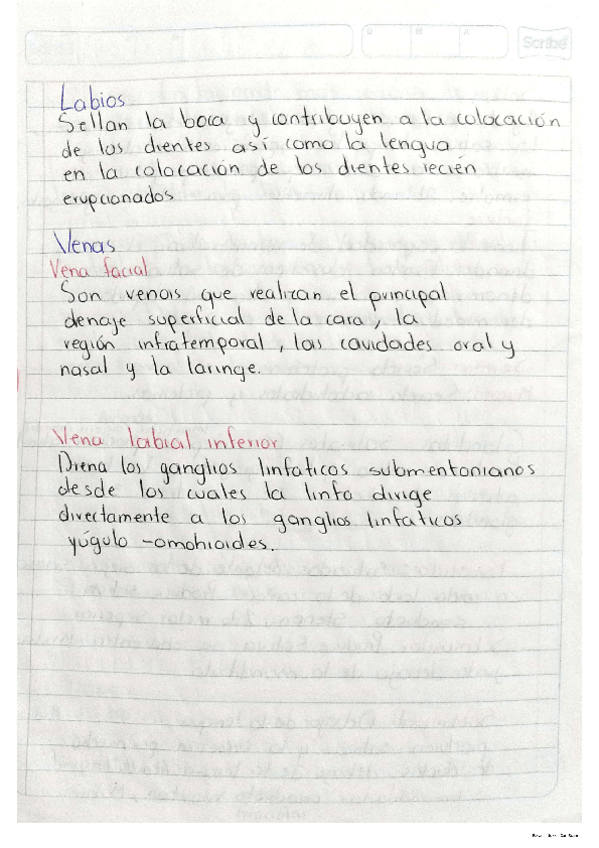 Scribe
D M A
Labios
Sellan la boca y contribuyen a la colocación
de los dientes así como la lengua
en la colocación de los dientes recién
erupcionados
Venas
Vena facial
Son venas que realizan el principal
denaje superficial de la cara, la
región infratemporal, las cavidades oral y
nasal y la laringe.
Vena labial inferior
Drena los ganglios linfaticos submentonianos
desde los cuales la linfa dirige
directamente a los ganglios linfaticos
yúgulo - omohioides.